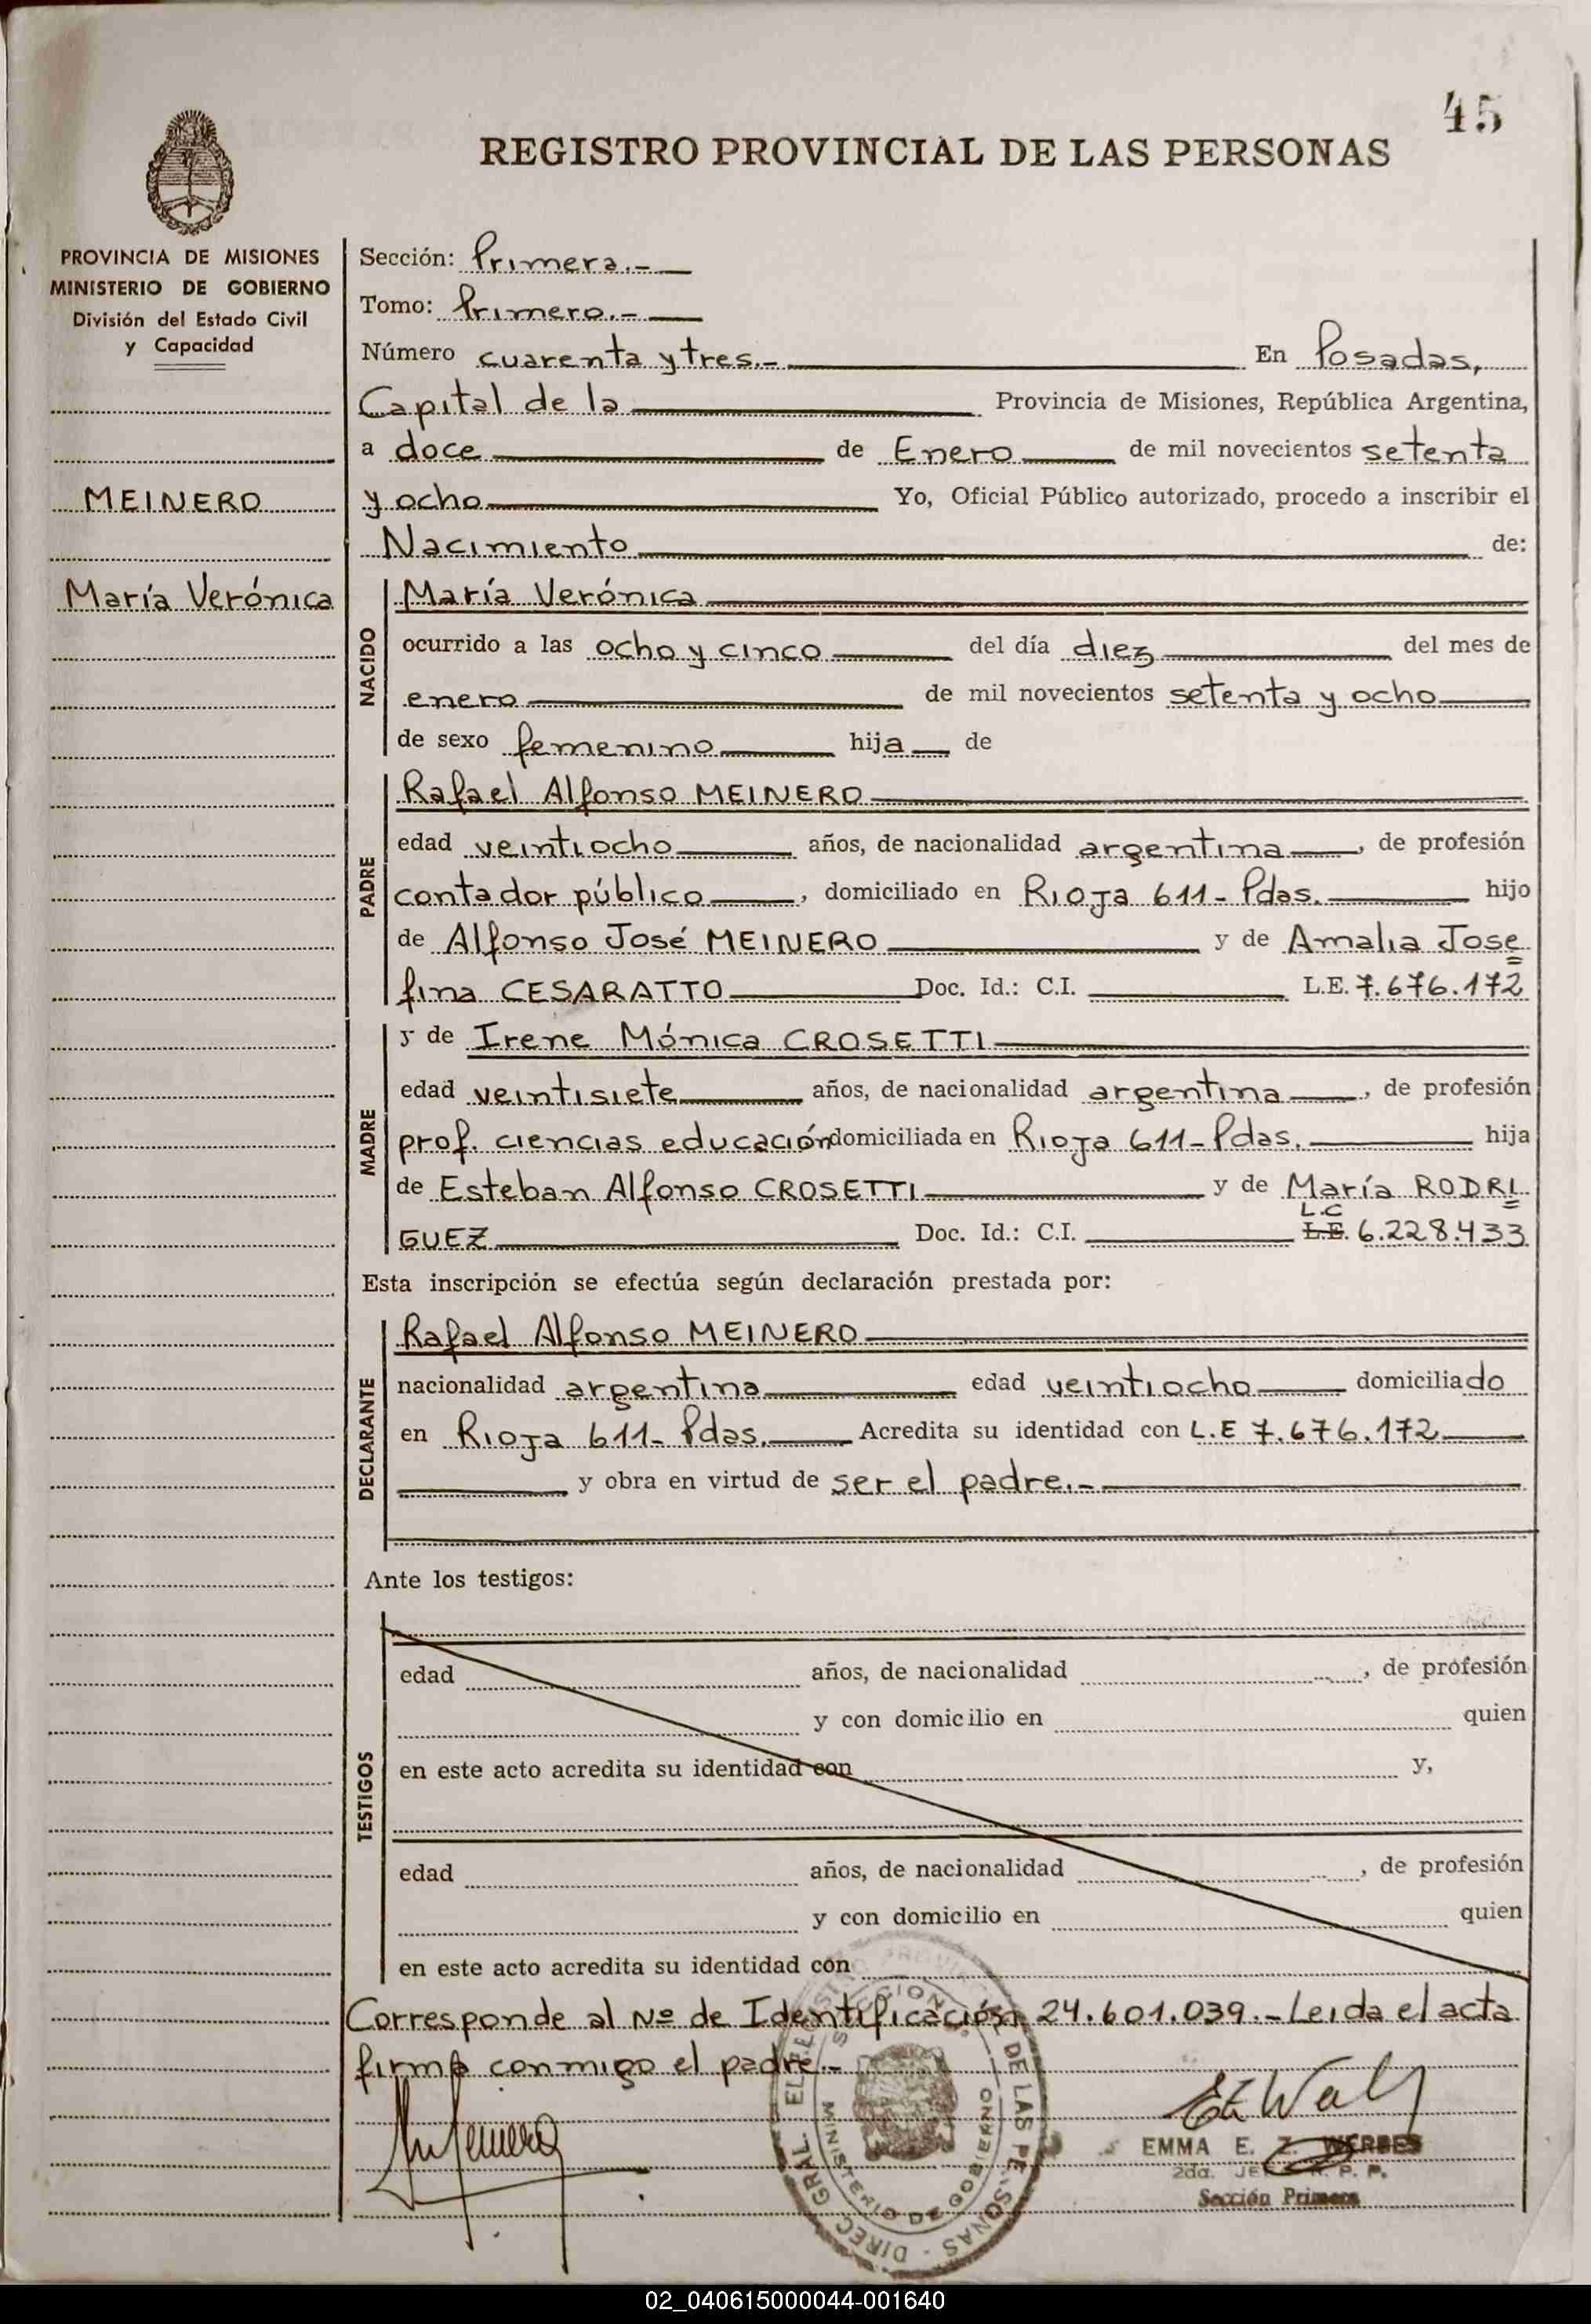 45
REGISTRO PROVINCIAL DE LAS PERSONAS
PROVINCIA DE MISIONES
MINISTERIO DE GOBIERNO
División del Estado Civil
y Capacidad
MEINERO
María Verónica
Sección: Primera.-
Tomo: Primero.-
Número cuarenta y tres.- En Posadas,
Capital de la Provincia de Misiones, República Argentina,
a doce de Enero de mil novecientos setenta
y ocho Yo, Oficial Público autorizado, procedo a inscribir el
Nacimiento de:
NACIDO
María Verónica
ocurrido a las ocho y cinco del día diez del mes de
enero de mil novecientos setenta y ocho
de sexo femenino hija de
PADRE
Rafael Alfonso MEINERO
edad veintiocho años, de nacionalidad argentina, de profesión
contador público, domiciliado en Rioja 611- Pdas. hijo
de Alfonso José MEINERO y de Amalia Jose
fina CESARATTO Doc. Id.: C.I. L.E. 7.676.172
MADRE
y de Irene Mónica CROSETTI
edad veintisiete años, de nacionalidad argentina, de profesión
prof. ciencias educación domiciliada en Rioja 611- Pdas. hija
de Esteban Alfonso CROSETTI y de María RODRI
L.C
GUEZ Doc. Id.: C.I. L.E. 6.228.433
Esta inscripción se efectúa según declaración prestada por:
DECLARANTE
Rafael Alfonso MEINERO
nacionalidad argentina edad veintiocho domiciliado
en Rioja 611- Pdas. Acredita su identidad con L.E 7.676.172
y obra en virtud de ser el padre.-
Ante los testigos:
TESTIGOS
edad años, de nacionalidad , de profesión
y con domicilio en quien
en este acto acredita su identidad con y,
edad años, de nacionalidad , de profesión
y con domicilio en quien
en este acto acredita su identidad con
Corresponde al Nº de Identificación 24.601.039.- Leida el acta
firma conmigo el padre.-
DE LAS PERSONAS - DIREC. GRAL.
MINISTERIO DE GOBIERNO
EMMA E. Z. WERBES
2da. JEFE R. P. P.
Sección Primera
02_040615000044-001640